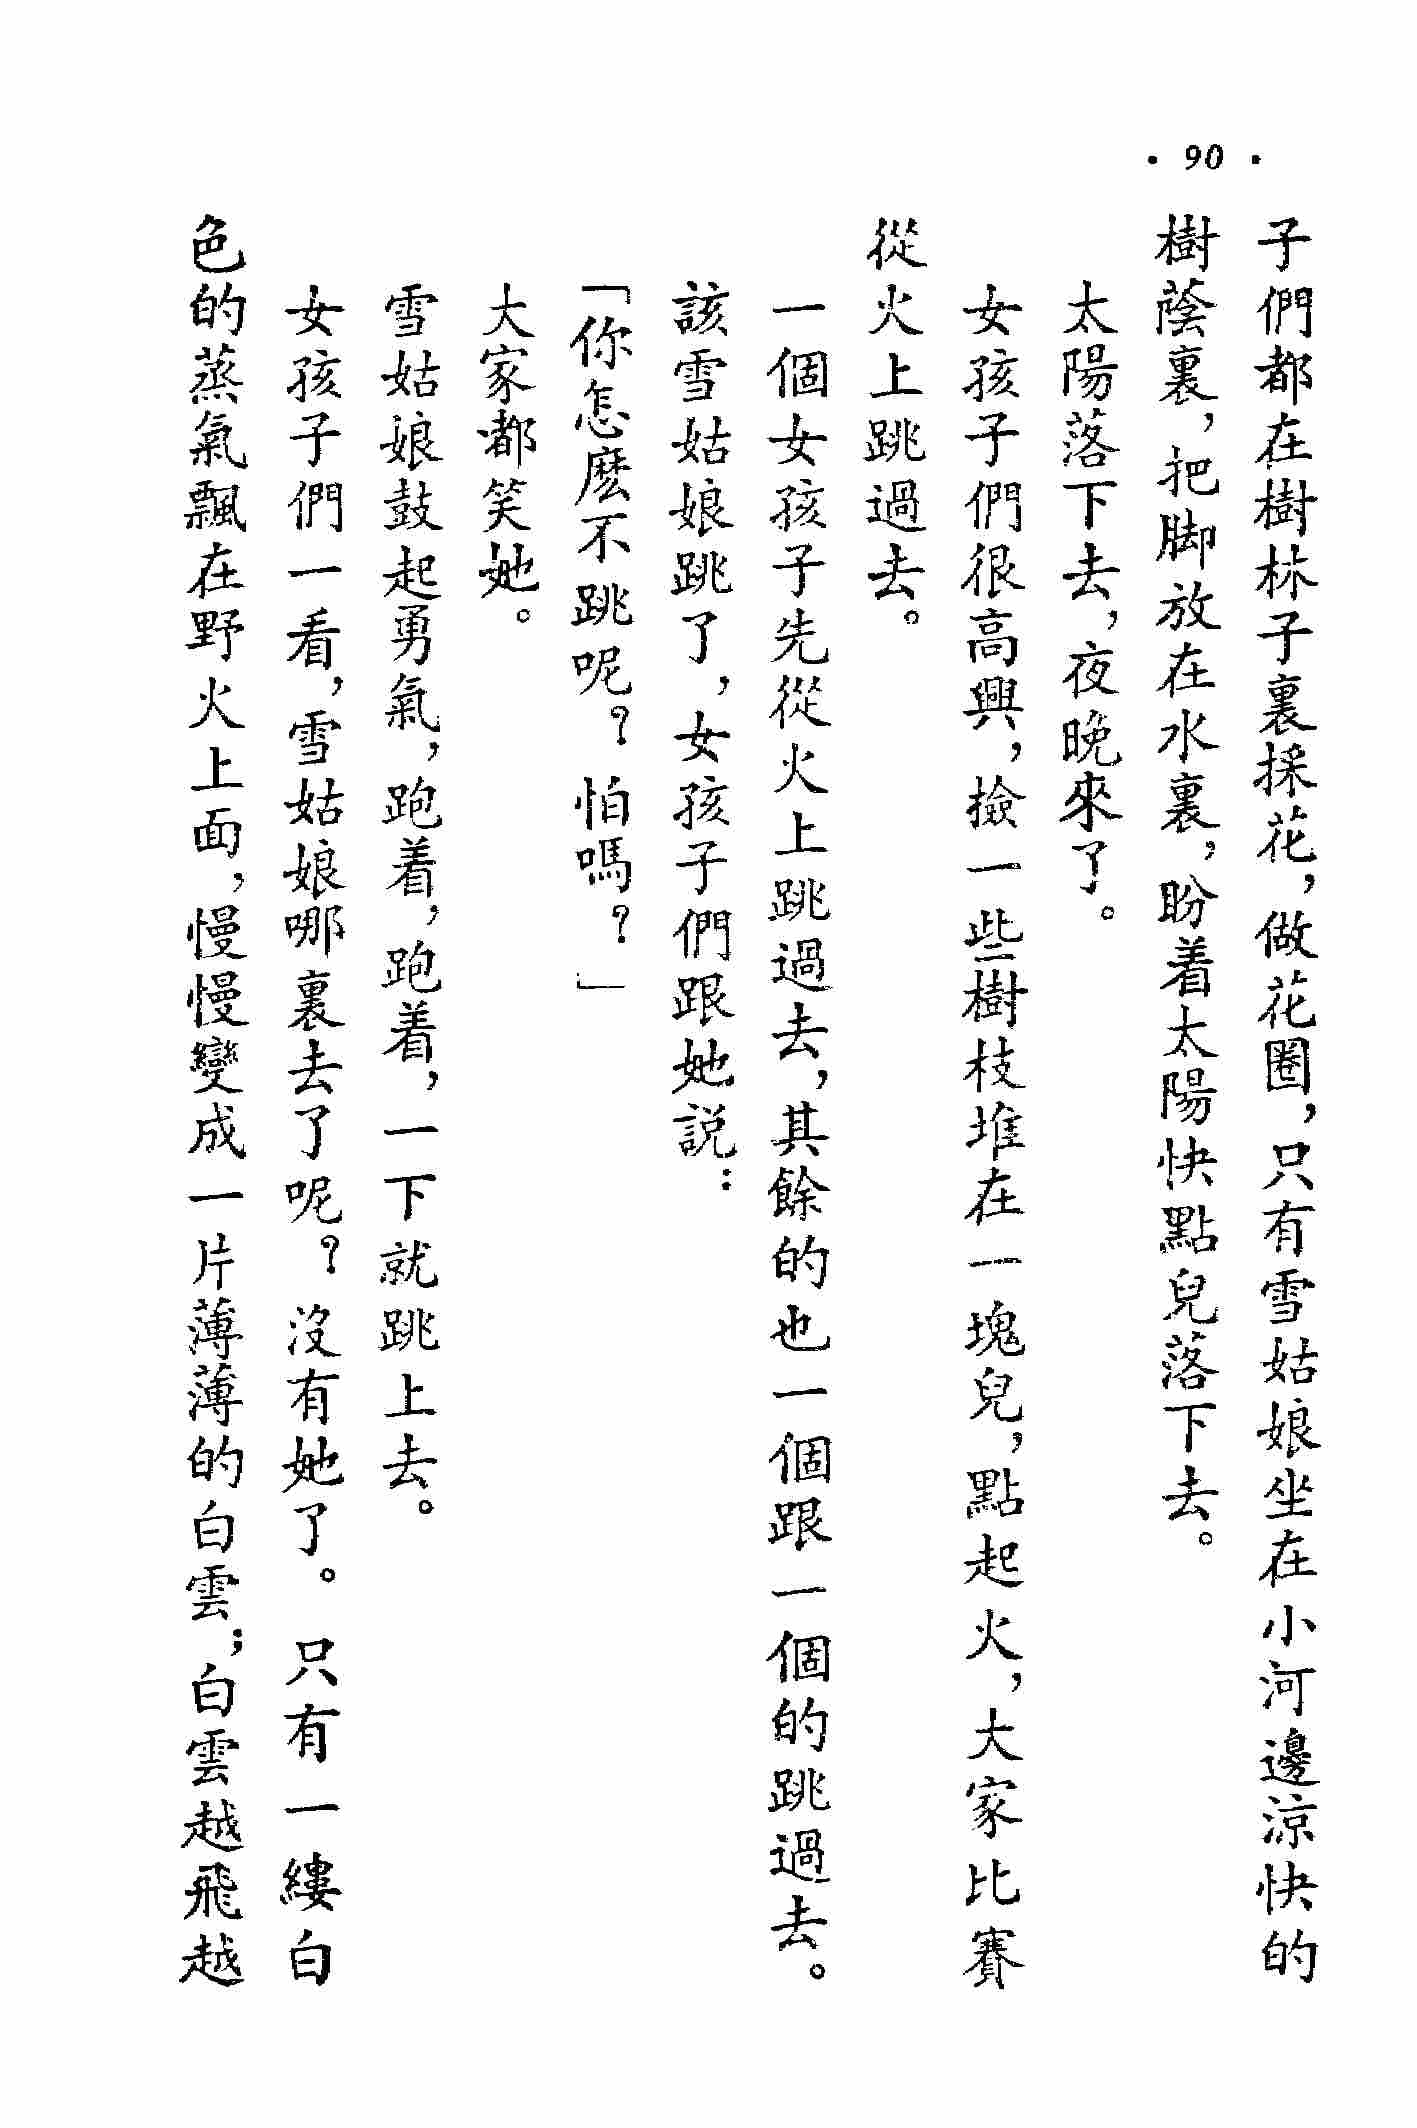 • 90 •
子們都在樹林子裏採花，做花圈，只有雪姑娘坐在小河邊涼快的
樹蔭裏，把脚放在水裏，盼着太陽快點兒落下去。
太陽落下去，夜晚來了。
女孩子們很高興，撿一些樹枝堆在一塊兒，點起火，大家比賽
從火上跳過去。
一個女孩子先從火上跳過去，其餘的也一個跟一個的跳過去。
該雪姑娘跳了，女孩子們跟她説：
「你怎麽不跳呢？怕嗎？」
大家都笑她。
雪姑娘鼓起勇氣，跑着，跑着，一下就跳上去。
女孩子們一看，雪姑娘哪裏去了呢？沒有她了。只有一縷白
色的蒸氣飄在野火上面，慢慢變成一片薄薄的白雲；白雲越飛越